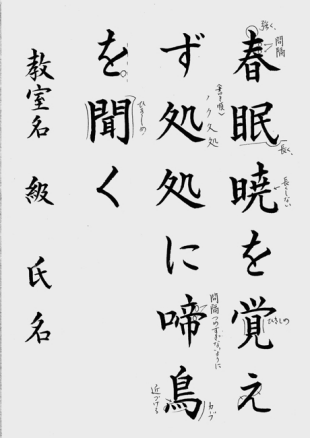 春眠暁を覚え
ず処処に啼鳥
を聞く
教室名 級 氏名
強く
間隔
長く
長くしない
ひきしめ
書き順
ノ ク 久 処
間隔つめすぎないように
近づける
ひきしめ